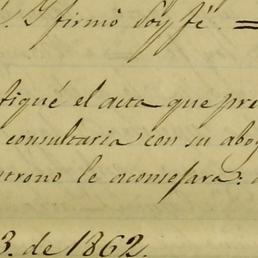 Y firmó Doy fé. =
tiqué el acta que pre
consultaria con su abog
trono le aconsejara: 
3. de 1862.